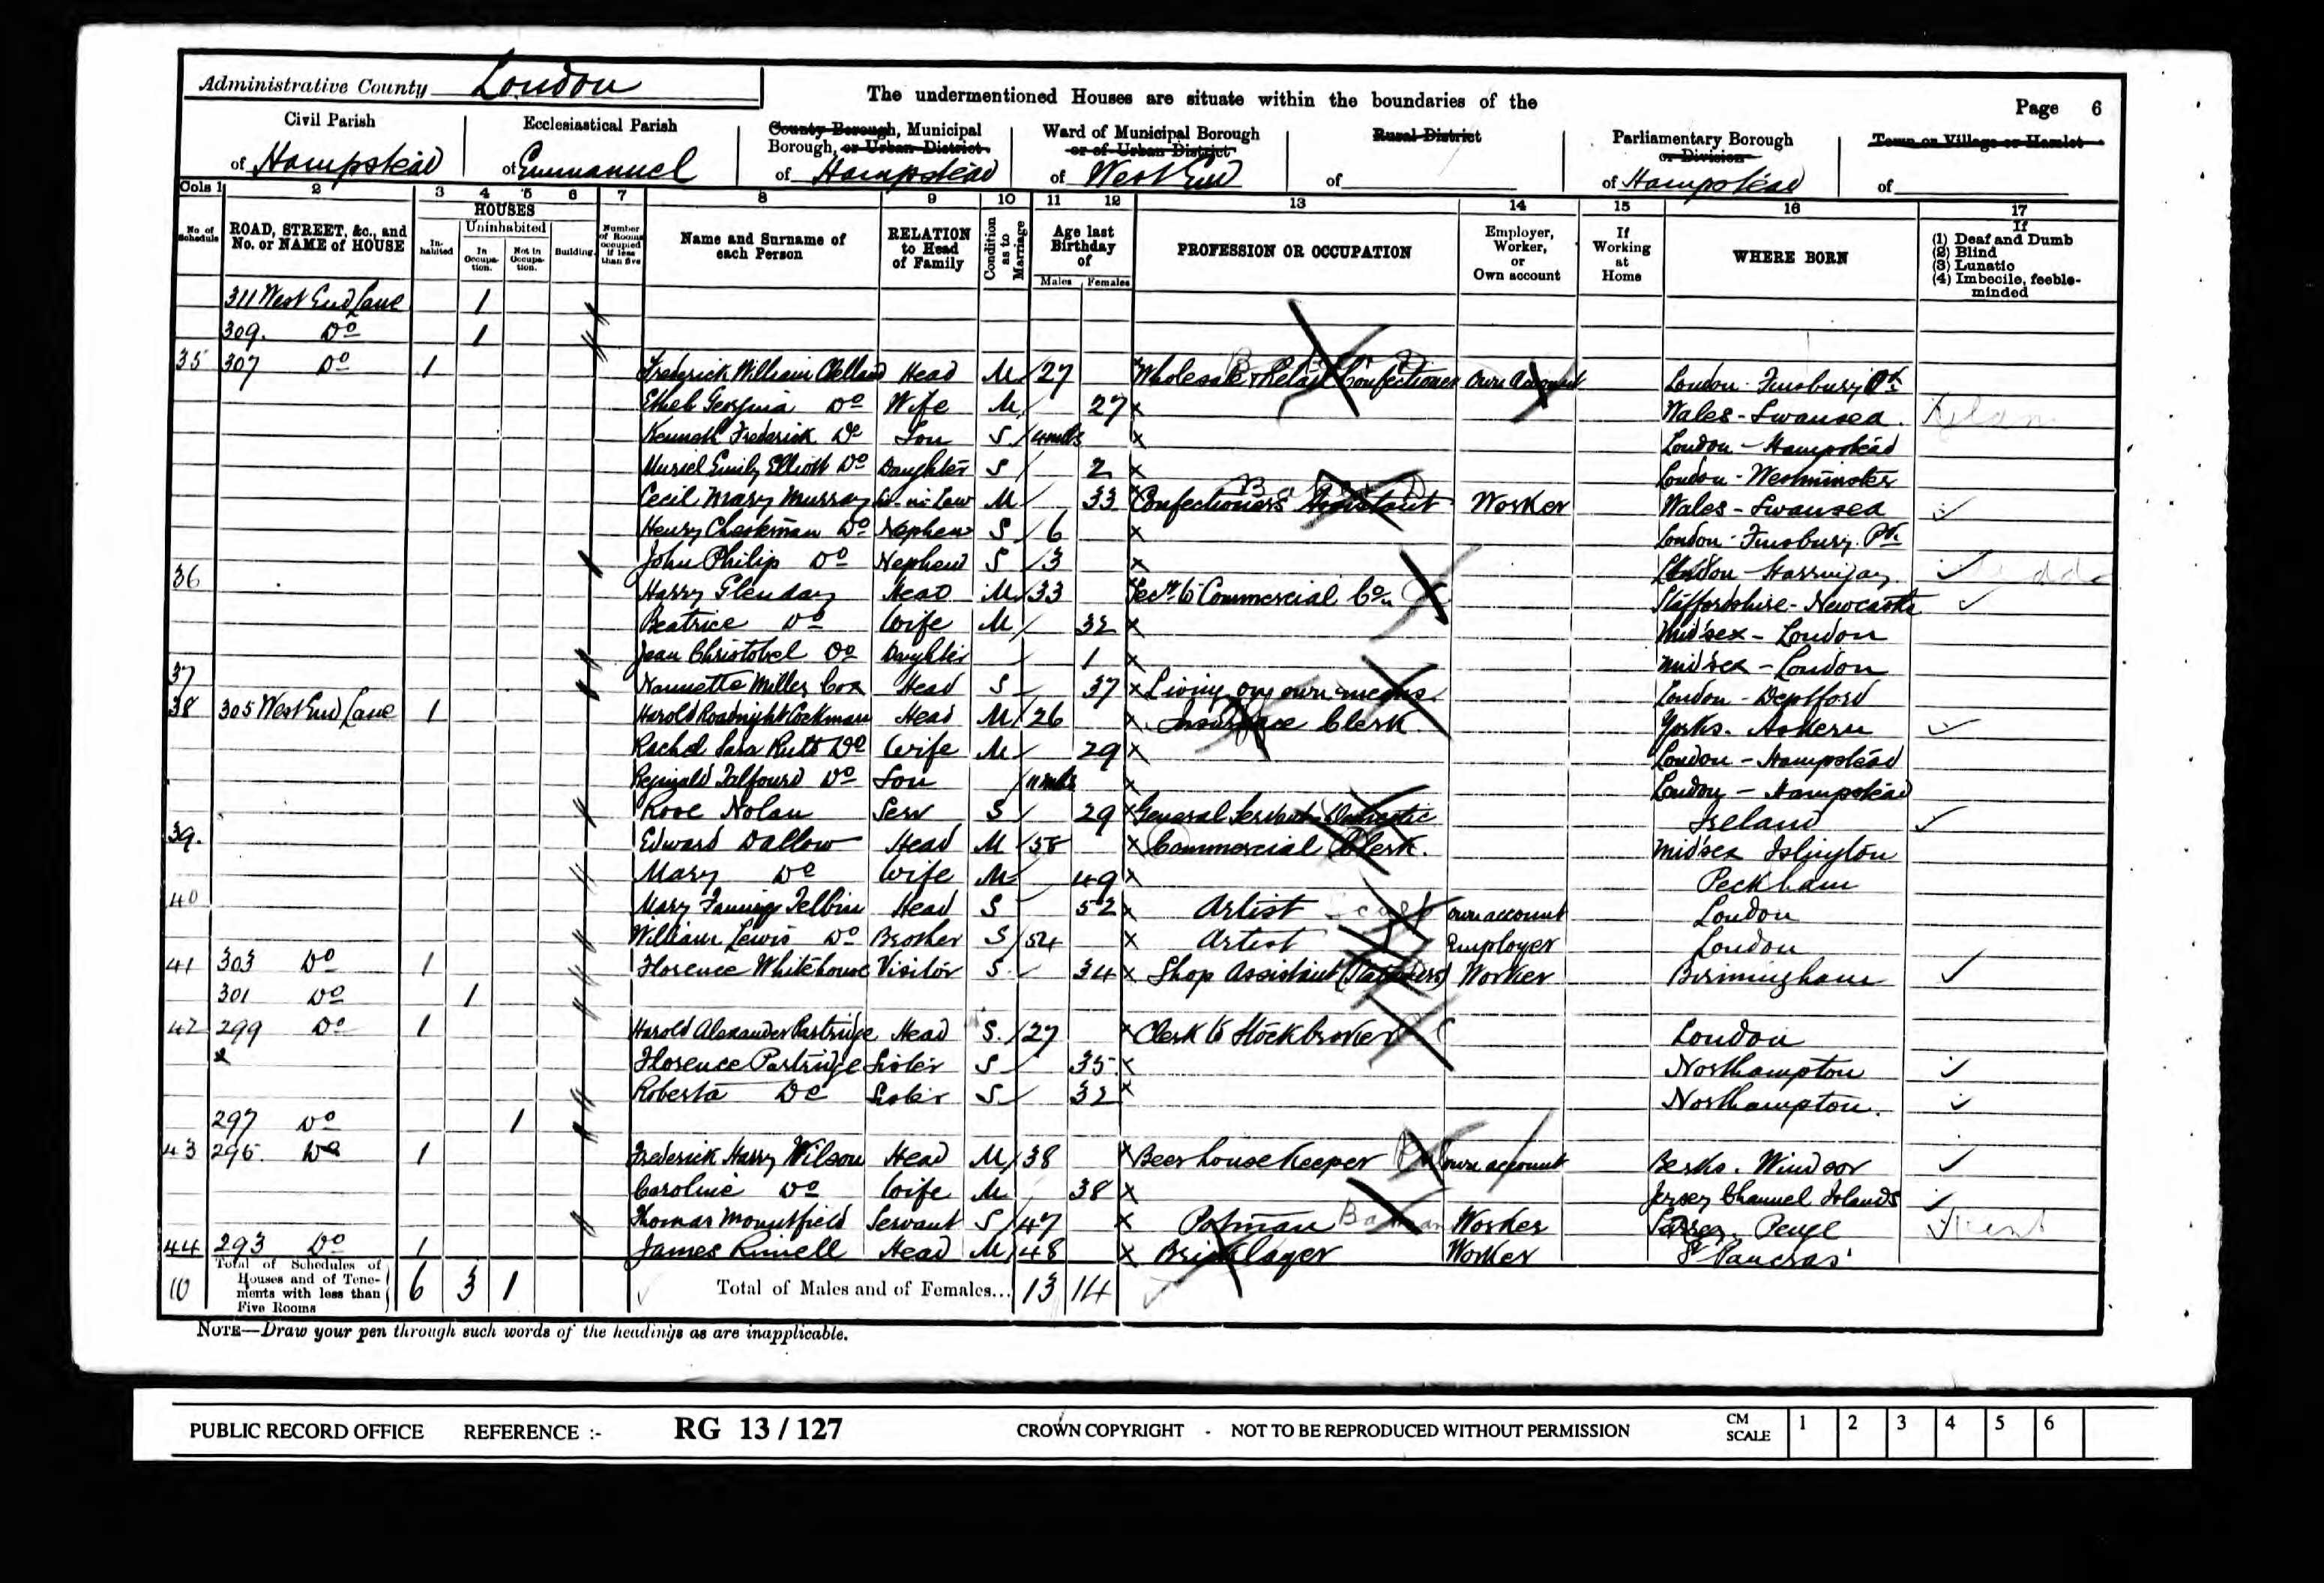 Administrative County London
The undermentioned Houses are situate within the boundaries of the
Page 6
Civil Parish of Hampstead
Ecclesiastical Parish of Emmanuel
County Borough, Municipal Borough, or Urban District of Hampstead
Ward of Municipal Borough or of Urban District of West End
Rural District of
Parliamentary Borough or Division of Hampstead
Town or Village or Hamlet of
Cols 1 2 3 4 5 6 7 8 9 10 11 12 13 14 15 16 17
No. of Schedule
ROAD, STREET, &c., and No. or NAME of HOUSE
HOUSES
Inhabited
Uninhabited
In Occupation.
Not in Occupation.
Building
Number of Rooms occupied if less than five
Name and Surname of each Person
RELATION to Head of Family
Condition as to Marriage
Age last Birthday of
Males Females
PROFESSION OR OCCUPATION
Employer, Worker, or Own account
If Working at Home
WHERE BORN
If (1) Deaf and Dumb (2) Blind (3) Lunatic (4) Imbecile, feeble-minded
311 West End Lane 1
309. Do 1
35 307 Do 1 Frederick William Clelland Head M 27 Wholesale & Retail Confectioner Own Account London - Finsbury Pk.
Ethel Georgina Do Wife M 27 Wales - Swansea
Kenneth Frederick Do Son S 4 mths London - Hampstead
Muriel Emily Elliott Do Daughter S 2 London - Westminster
Cecil Mary Murray in Law M 33 Confectioners Assistant Worker Wales - Swansea
Henry Do Nephew S 6 London - Finsbury Pk.
John Philip Do Nephew S 3 London - Harringay
36 Harry Glenday Head M 33 Secy. to Commercial Co. Staffordshire - Newcastle
Beatrice Do Wife M 32 Mid'sex - London
Jean Christobel Do Daughter 1 Mid'sex - London
37 Nannette Miller Cox Head S 37 Living on own means London - Deptford
38 305 West End Lane 1 Harold Roadnight Cockman Head M 26 Insurance Clerk Yorks. Askern
Rachel Sara Ruth Do Wife M 29 London - Hampstead
Reginald Talfourd Do Son 11 mths London - Hampstead
Rose Nolan Serv S 29 General Servant Domestic Ireland
39. Edward Dallow Head M 58 Commercial Clerk. Mid'sex Islington
Mary Do Wife M 49 Peckham
40 Mary Fanny Telbin Head S 52 Artist own account London
William Lewis Do Brother S 54 Artist Employer London
41 303 Do 1 Florence Whitehouse Visitor S 34 Shop Assistant (Stationers) Worker Birmingham
301 Do 1
42 299 Do 1 Harold Alexander Partridge Head S. 27 Clerk to Stockbroker London
Florence Partridge Sister S 35 Northampton
Roberta Do Sister S 32 Northampton.
297 Do 1
43 295. Do 1 Frederick Harry Wilson Head M 38 Beerhouse Keeper own account Berks. Windsor
Caroline Do Wife M 38 Jersey Channel Islands
Thomas Mountfield Servant S 47 Potman Barman Worker Surrey Penge Kent
44 293 Do 1 James Rimell Head M 48 Bricklayer Worker St Pancras
10 Total of Schedules of Houses and of Tenements with less than Five Rooms 6 3 1 Total of Males and of Females... 13 14
NOTE—Draw your pen through such words of the headings as are inapplicable.
PUBLIC RECORD OFFICE REFERENCE :- RG 13 / 127 CROWN COPYRIGHT - NOT TO BE REPRODUCED WITHOUT PERMISSION CM SCALE 1 2 3 4 5 6